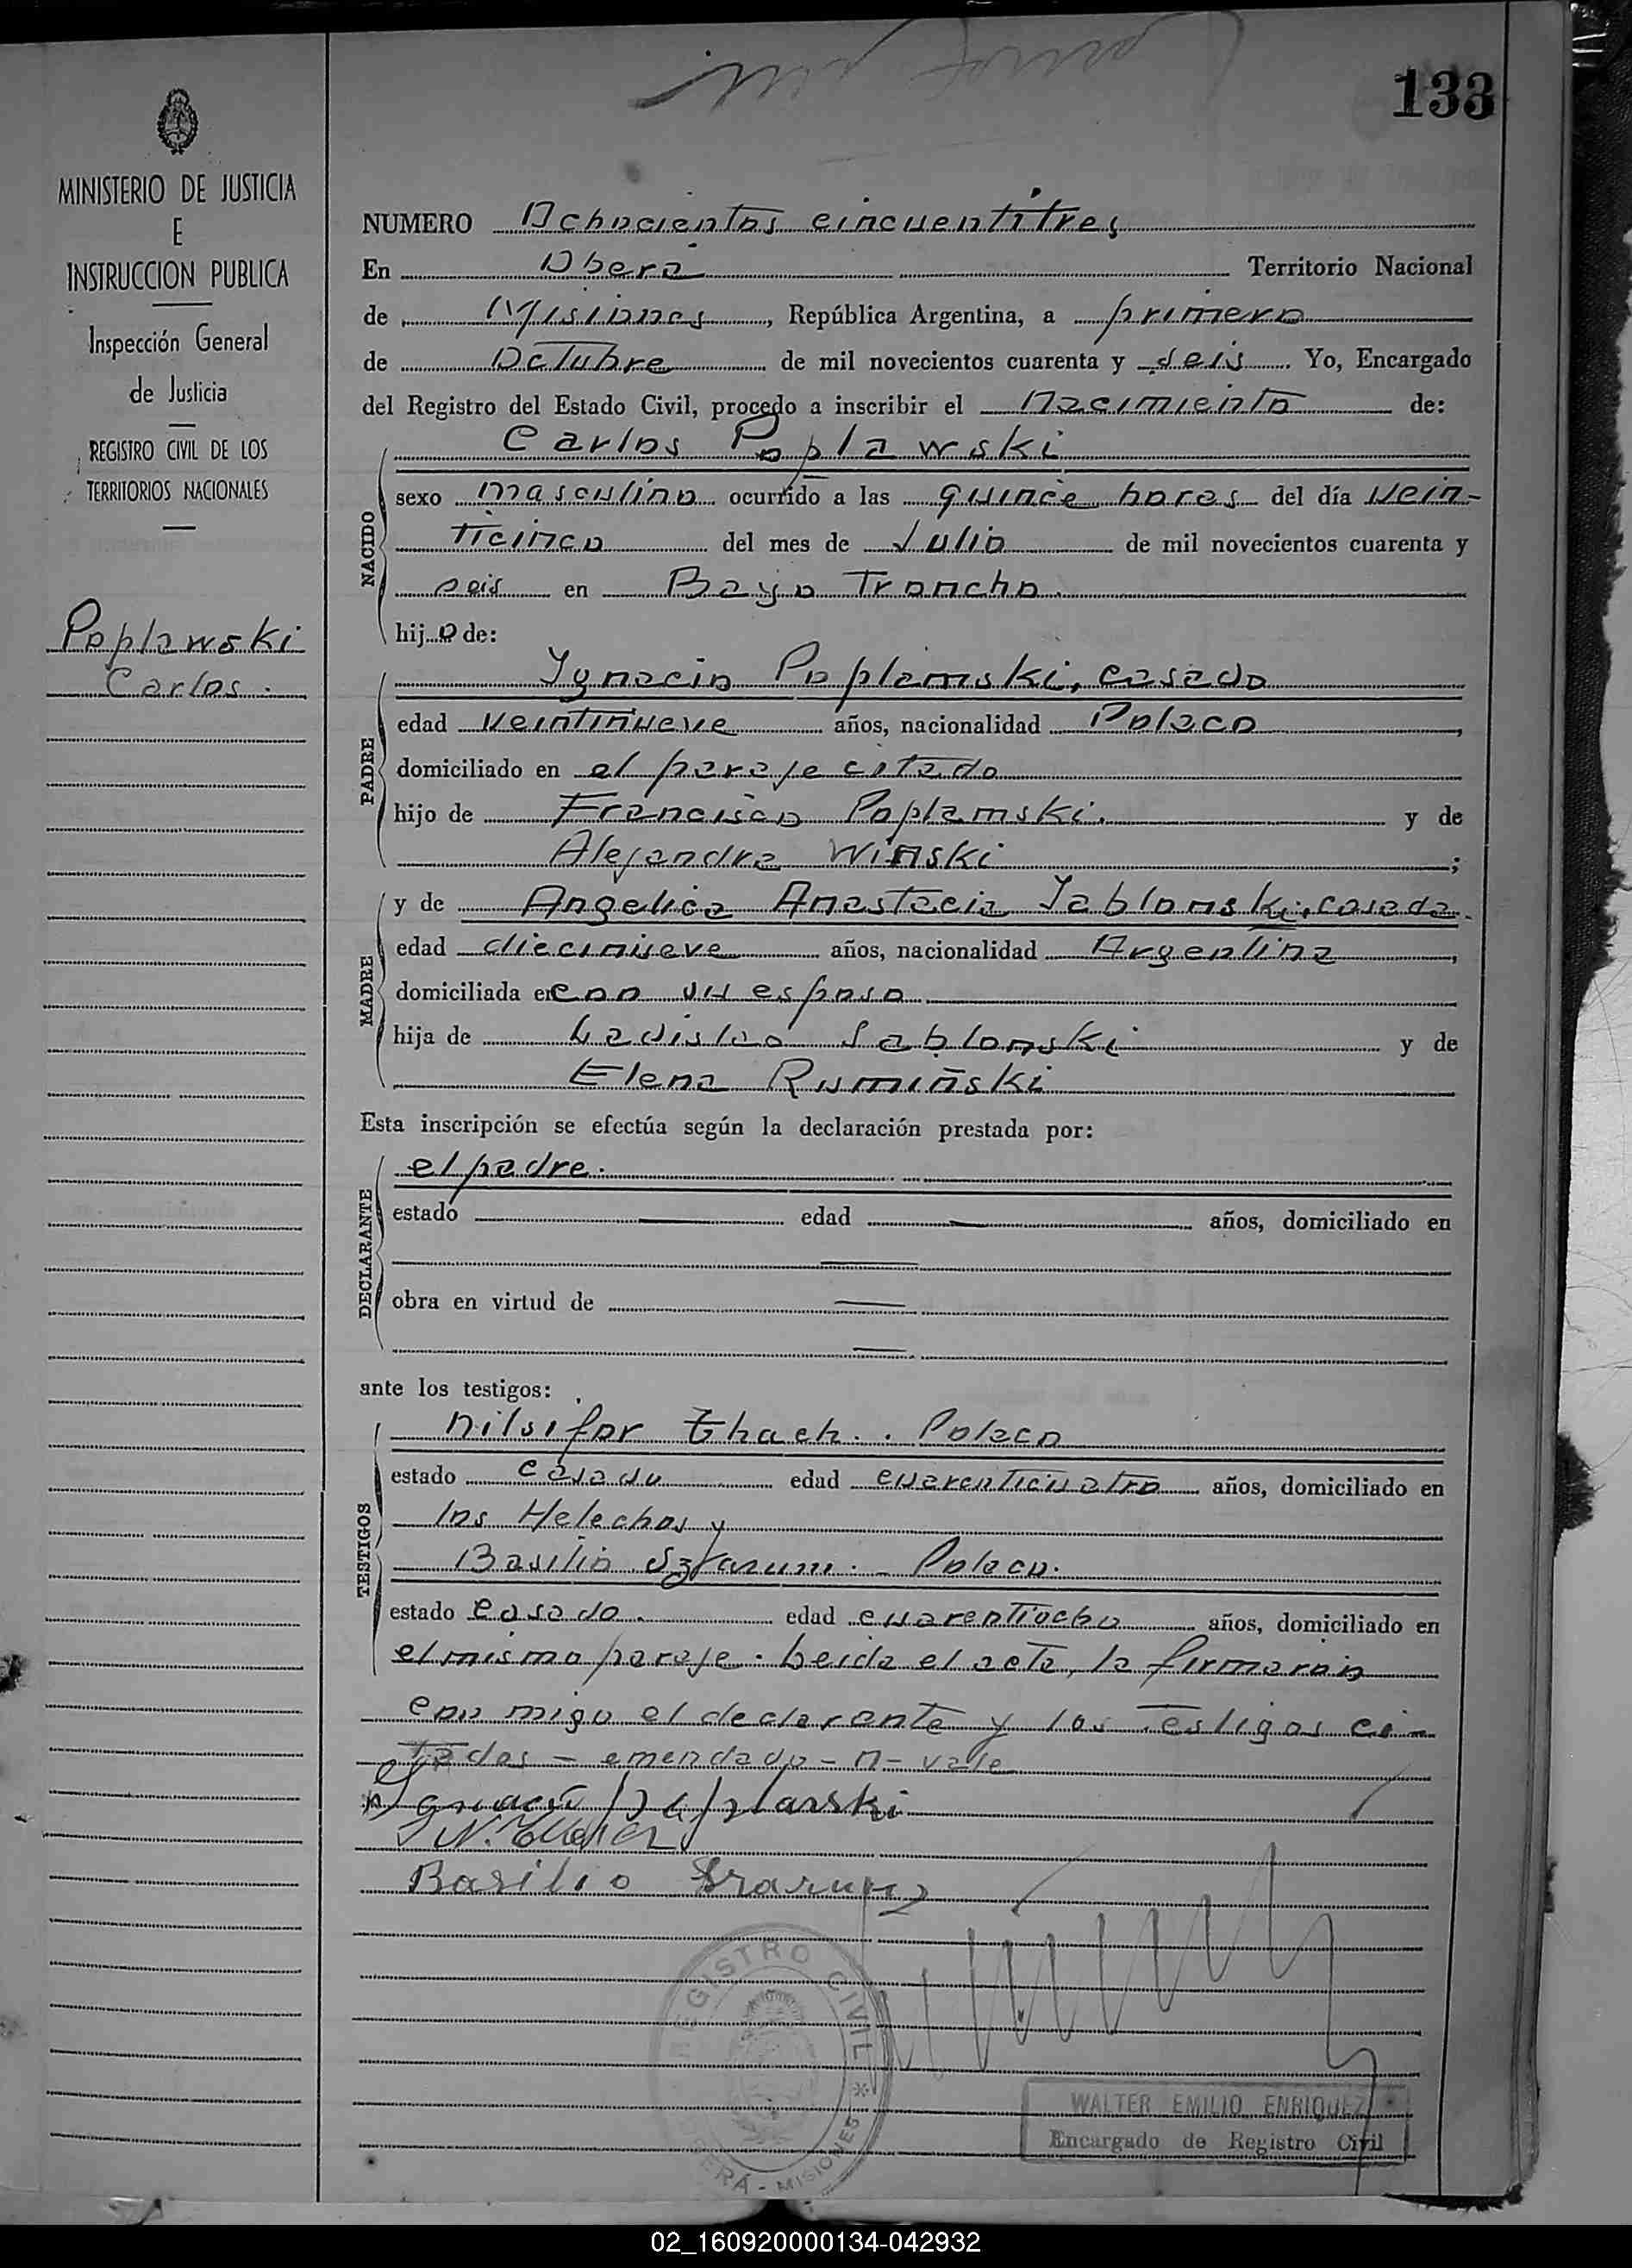 133
MINISTERIO DE JUSTICIA
E
INSTRUCCION PUBLICA
Inspección General
de Justicia
REGISTRO CIVIL DE LOS
TERRITORIOS NACIONALES
Poplawski
Carlos.
NUMERO Ochocientos cincuentitres
En Oberá Territorio Nacional
de Misiones, República Argentina, a primero
de Octubre de mil novecientos cuarenta y seis. Yo, Encargado
del Registro del Estado Civil, procedo a inscribir el Nacimiento de:
NACIDO
Carlos Poplawski
sexo masculino ocurrido a las quince horas del día vein-
ticinco del mes de Julio de mil novecientos cuarenta y
seis en Bayo Troncho.
hijo de:
PADRE
Ygnacio Poplamski, casado
edad veintinueve años, nacionalidad Polaco,
domiciliado en el paraje citado
hijo de Francisco Poplamski. y de
Alejandra Winski;
MADRE
y de Angelica Anastacia Jablonski, casada.
edad diecinueve años, nacionalidad Argentina,
domiciliada en con su esposo
hija de Ladislao Jablonski y de
Elena Rumiñski
Esta inscripción se efectúa según la declaración prestada por:
DECLARANTE
el padre.
estado — edad — años, domiciliado en
—
obra en virtud de —
—
ante los testigos:
TESTIGOS
Nilsifor . Polaco
estado casado edad cuarenticuatro años, domiciliado en
los Helechos y
Basilio . - Polaco.
estado casado. edad cuarentiocho años, domiciliado en
el mismo paraje. Leida el acta, la firmarón
con migo el declarante y los testigos ci-
tados - emendado - n - vale
Basilio
REGISTRO CIVIL
OBERÁ - MISIONES
WALTER EMILIO ENRIQUEZ
Encargado de Registro Civil
02_160920000134-042932